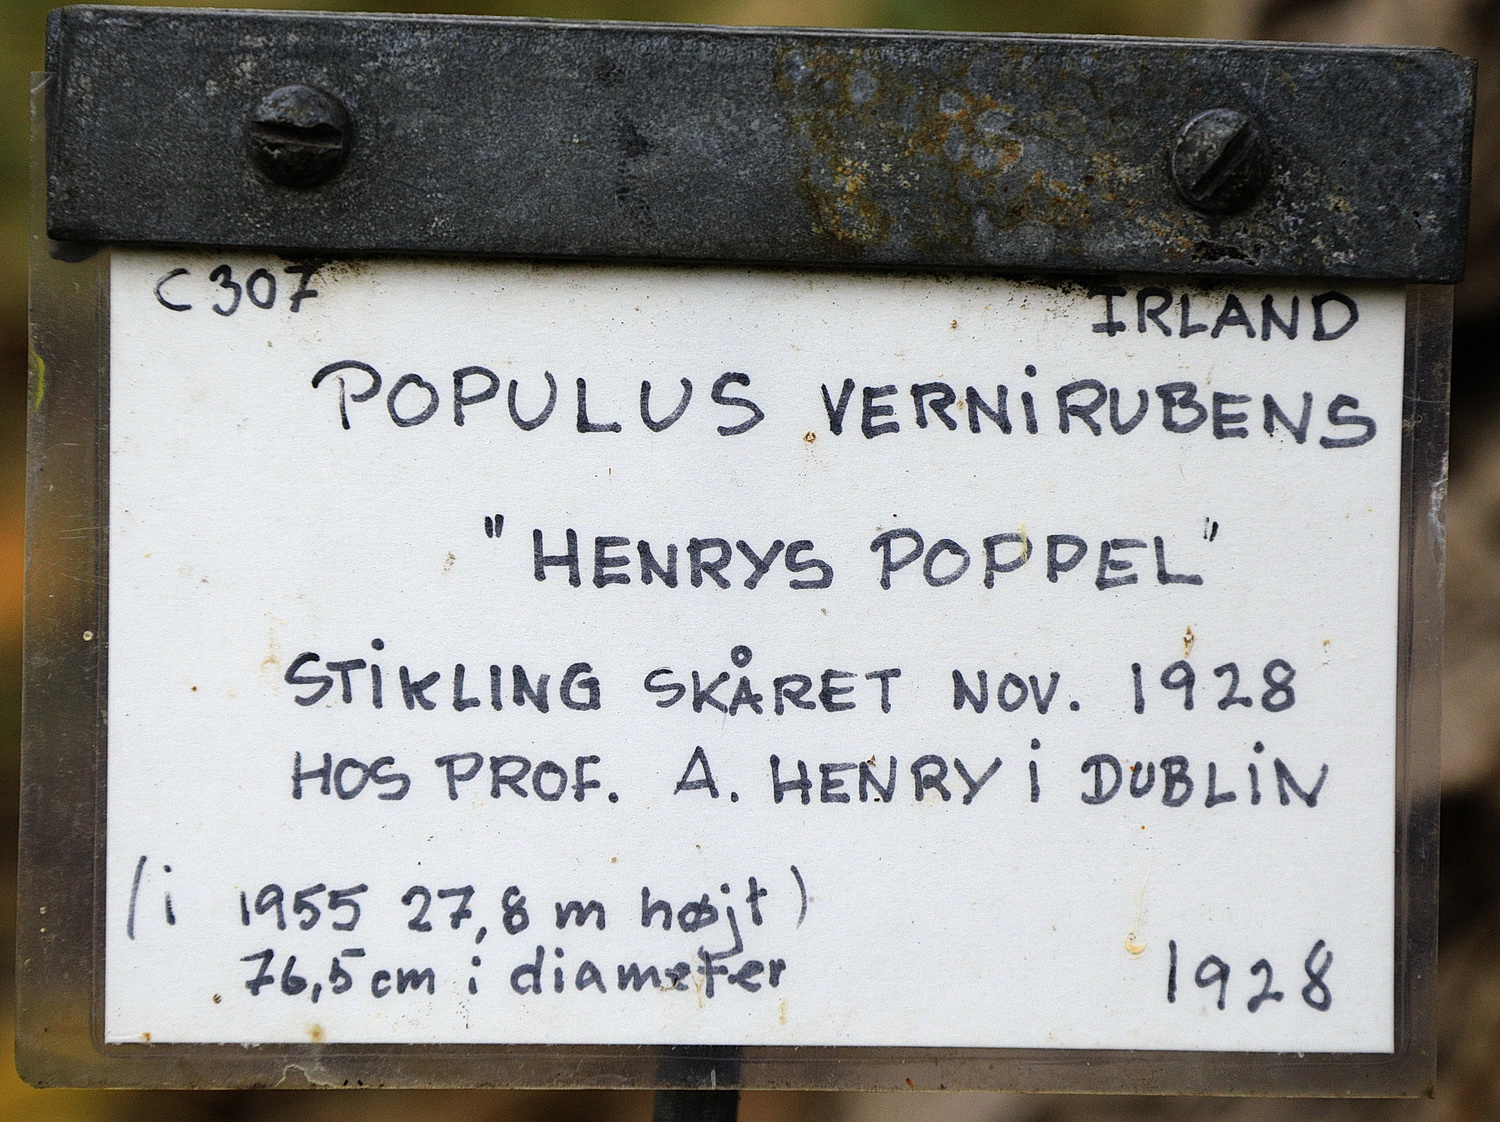 C307 IRLAND
POPULUS VERNiRUBENS
"HENRYS POPPEL"
STiKLING SKÅRET NOV. 1928
HOS PROF. A. HENRY i DUBLiN
(i 1955 27,8 m højt)
76,5 cm i diameter
1928